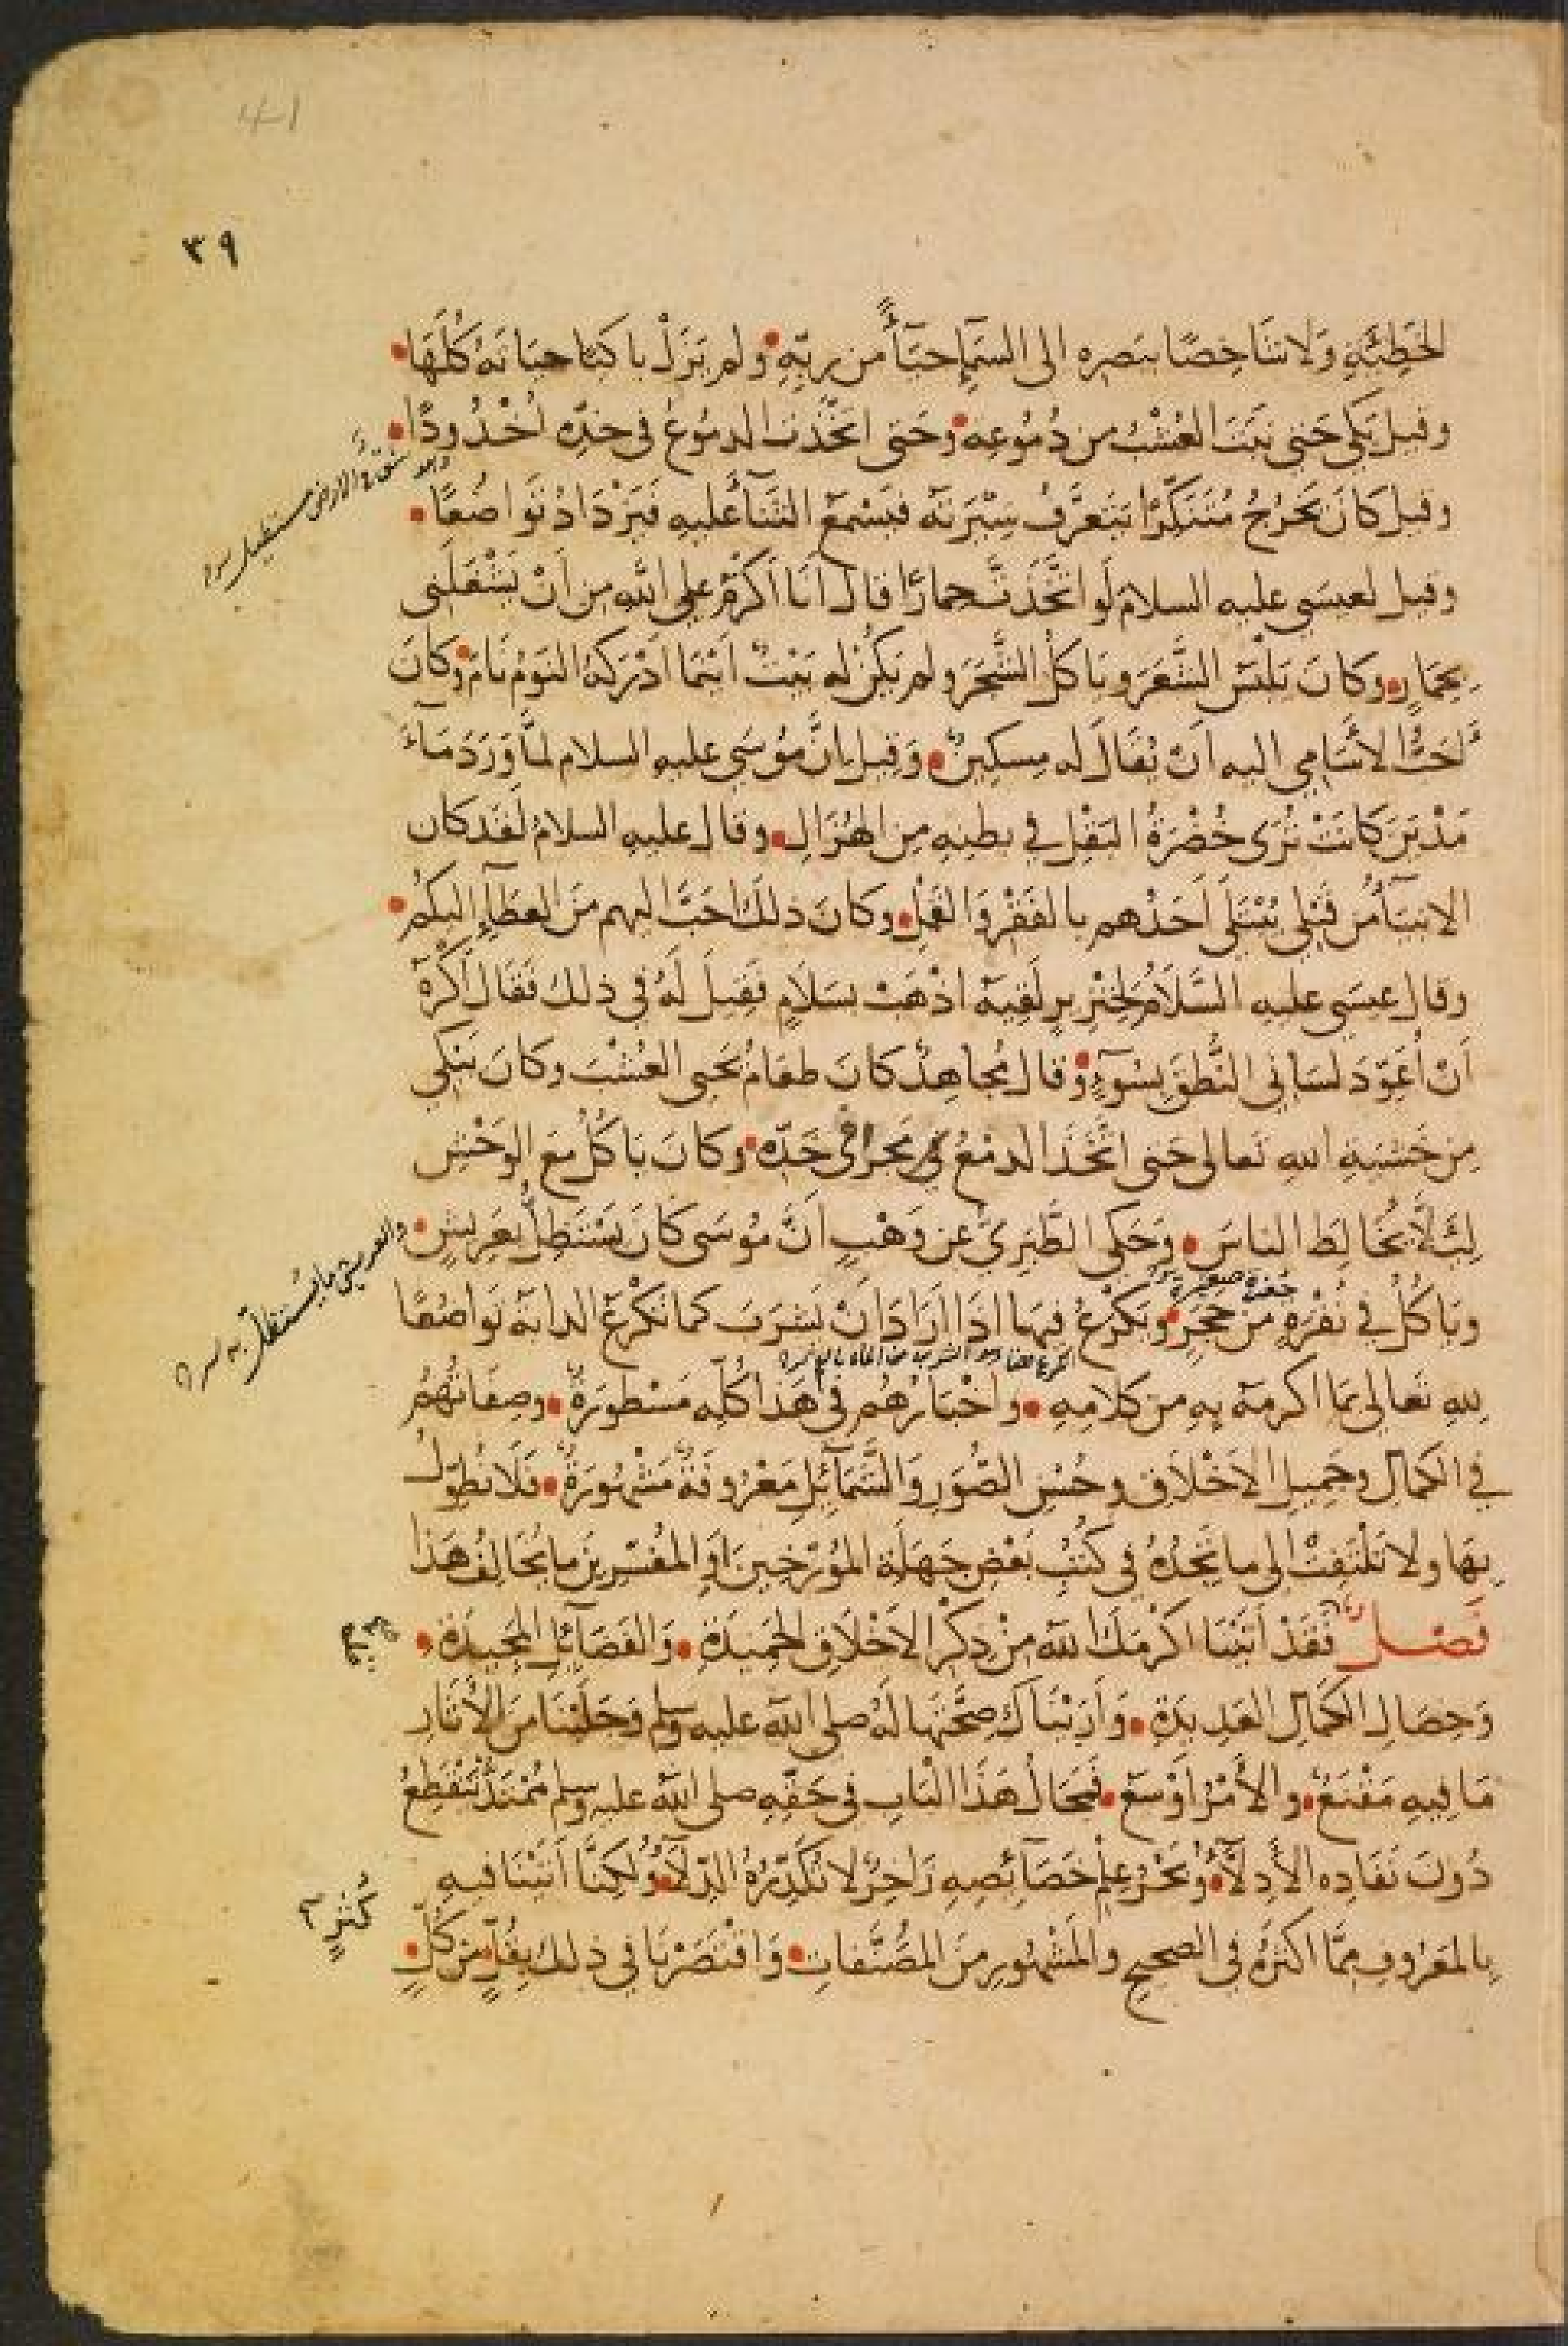 ٣٩
الخَطِيَّةِ وَلا شَاخِصًا ببَصره الى السَّمَاءِ حيَآءً من ربّهِ ولم يَزَلْ باكيًا حيَاتَهُ كُلَّهَا
وقيل بَكى حَتى نبَتَ العُشْبُ من دُمُوعِه وحَتى اتخَّذَت الدمُوعُ فى خدِّه اُخْدُودًا
وهو شق فى الارض مستطيل
وقيل كانَ يَخرُجُ مُتنَكِّرًا يَتعَرَّفُ سِيْرَتَهُ فيَسْمَعُ الثَّنَآءَ عليهِ فَيَزْدَادُ تَوَاضُعًا
وقيل لعيسَى عليه السلامُ لَو اتَّخَذْتَ حِمارًا قال اَنَا اَكْرَمُ على اللّهِ مِن اَنْ يَشْغَلَنى
بحِمَارٍ وكانَ يَلْبَسُ الشَّعَرَ ويَاكلُ الشَّجَرَ ولم يَكنْ له بَيْتٌ اَيْنَمَا اَدْرَكَهُ النَومُ نَامَ وكانَ
اَحَبُّ الاَسَامِى اليهِ اَنْ يُقَالَ لَه مِسكِينٌ وَقيل انَّ مُوسَى عليه السلام لمَّا وَرَدَ مَآءَ
مَدْيَنَ كانَتْ تُرَى خُضْرَةُ البَقْلِ فى بطنِهِ مِن الهُزَالِ وقال عليه السلامُ لَقَد كان
الانبيَآءُ مِن قَبْلى يُبْتَلَى اَحَدُهم بالفَقْرِ وَالقَمْلِ وكانَ ذلكَ احَبَّ اليهم مِنَ العطَآءِ اليكُم
وقال عيسَى عليهِ السَّلَامُ لخِنْزِيرٍ لَقِيَهُ اذْهَبْ بسَلَامٍ فَقيلَ لَهُ فى ذلك فَقَالَ اَكْرَهُ
اَنْ اُعَوِّدَ لسَانى النُّطقَ بسُوءٍ وقال مُجاهِدٌ كانَ طعَامُ يَحيى العُشْبَ وكانَ يَبْكِى
مِن خَشْيَةِ اللهِ تعَالى حَتى اتَّخَذَ الدمْعُ مَجرًى فى خَدِّه وكانَ يَاكُلُ مَعَ الوَحْشِ
لِئَلَّا يُخَالِطَ الناسَ وحَكَى الطَّبَرِىُّ عن وَهْبٍ اَنَّ مُوسَى كانَ يَسْتَظِلُّ بعَرِيشٍ
والعريش ما يُستظل به
حفرة صغيرة
ويَاكُلُ فى نُقْرَةٍ من حَجَرٍ ويَكْرَعُ فيهَا اذَا اَرَادَ اَنْ يَشرَبَ كما تَكْرَعُ الدابَةُ تَوَاضُعًا
الكرع ههنا وهو الشرب من الماء بالفم
لله تعَالى بمَا اكرمَهُ بِهِ من كلامِهِ واخْبَارُهُم فى هَذا كُلِّه مَسْطورَةٌ وصفَاتُهُم
فى الكمَالِ وجَمِيلِ الاَخْلَاقِ وحُسْنِ الصُّوَرِ وَالشَّمَآئِلِ مَعْرُوفَةٌ مَشْهُورَةٌ فلَا نُطَوِّلُ
بهَا ولا تَلْتَفِتْ الى ما تَجِدُهُ فى كُتُبِ بَعْضِ جَهَلَةِ المُؤرِّخينَ وَالمُفسِّرِينَ ما يُخَالِفُ هَذا
فَصْلٌ فَقَدْ اَتَيْنَا اكرمَكَ اللّه مِنْ ذِكْرِ الاَخْلَاقِ الحَمِيدَةِ وَالفَضَآئِلِ المَجِيدَةِ
وَخِصَالِ الكمَالِ العَدِيدَةِ وَاَرَيْنَاكَ صِحَّتَهَا لَهُ صلى اللّه عليه وسلم وَجَلَبْنَا مِنَ الآثَارِ
مَا فِيهِ مَقْنَعٌ والاَمْرُ اَوْسَعُ فمَجَالُ هَذَا البَابِ فى حَقِّهِ صلى اللّه عليه وسلم مُمْتَدٌّ تَنْقَطِعُ
دُونَ نَفَادِه الأَدِلَّآءُ وبَحْرُ عِلْمِ خَصَآئِصِهِ زَاخِرٌ لا تُكَدِّرُهُ الدِّلَآءُ ولكِنَّا اَتَيْنَا فيهِ
بالمَعْرُوفِ مِمَّا اكثَرُهُ فى الصحيحِ والمَشْهُورِ مِنَ المُصَنَّفَاتِ وَاقْتَصَرْنَا فى ذلك بِقُلٍّ مِن كُلٍّ